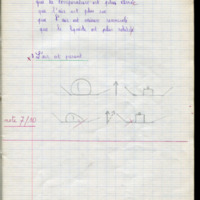 que la température est plus élevée.
que l'air est plus sec
que l'air est
que le liquide est plus
L'air est pesant
note 7/10